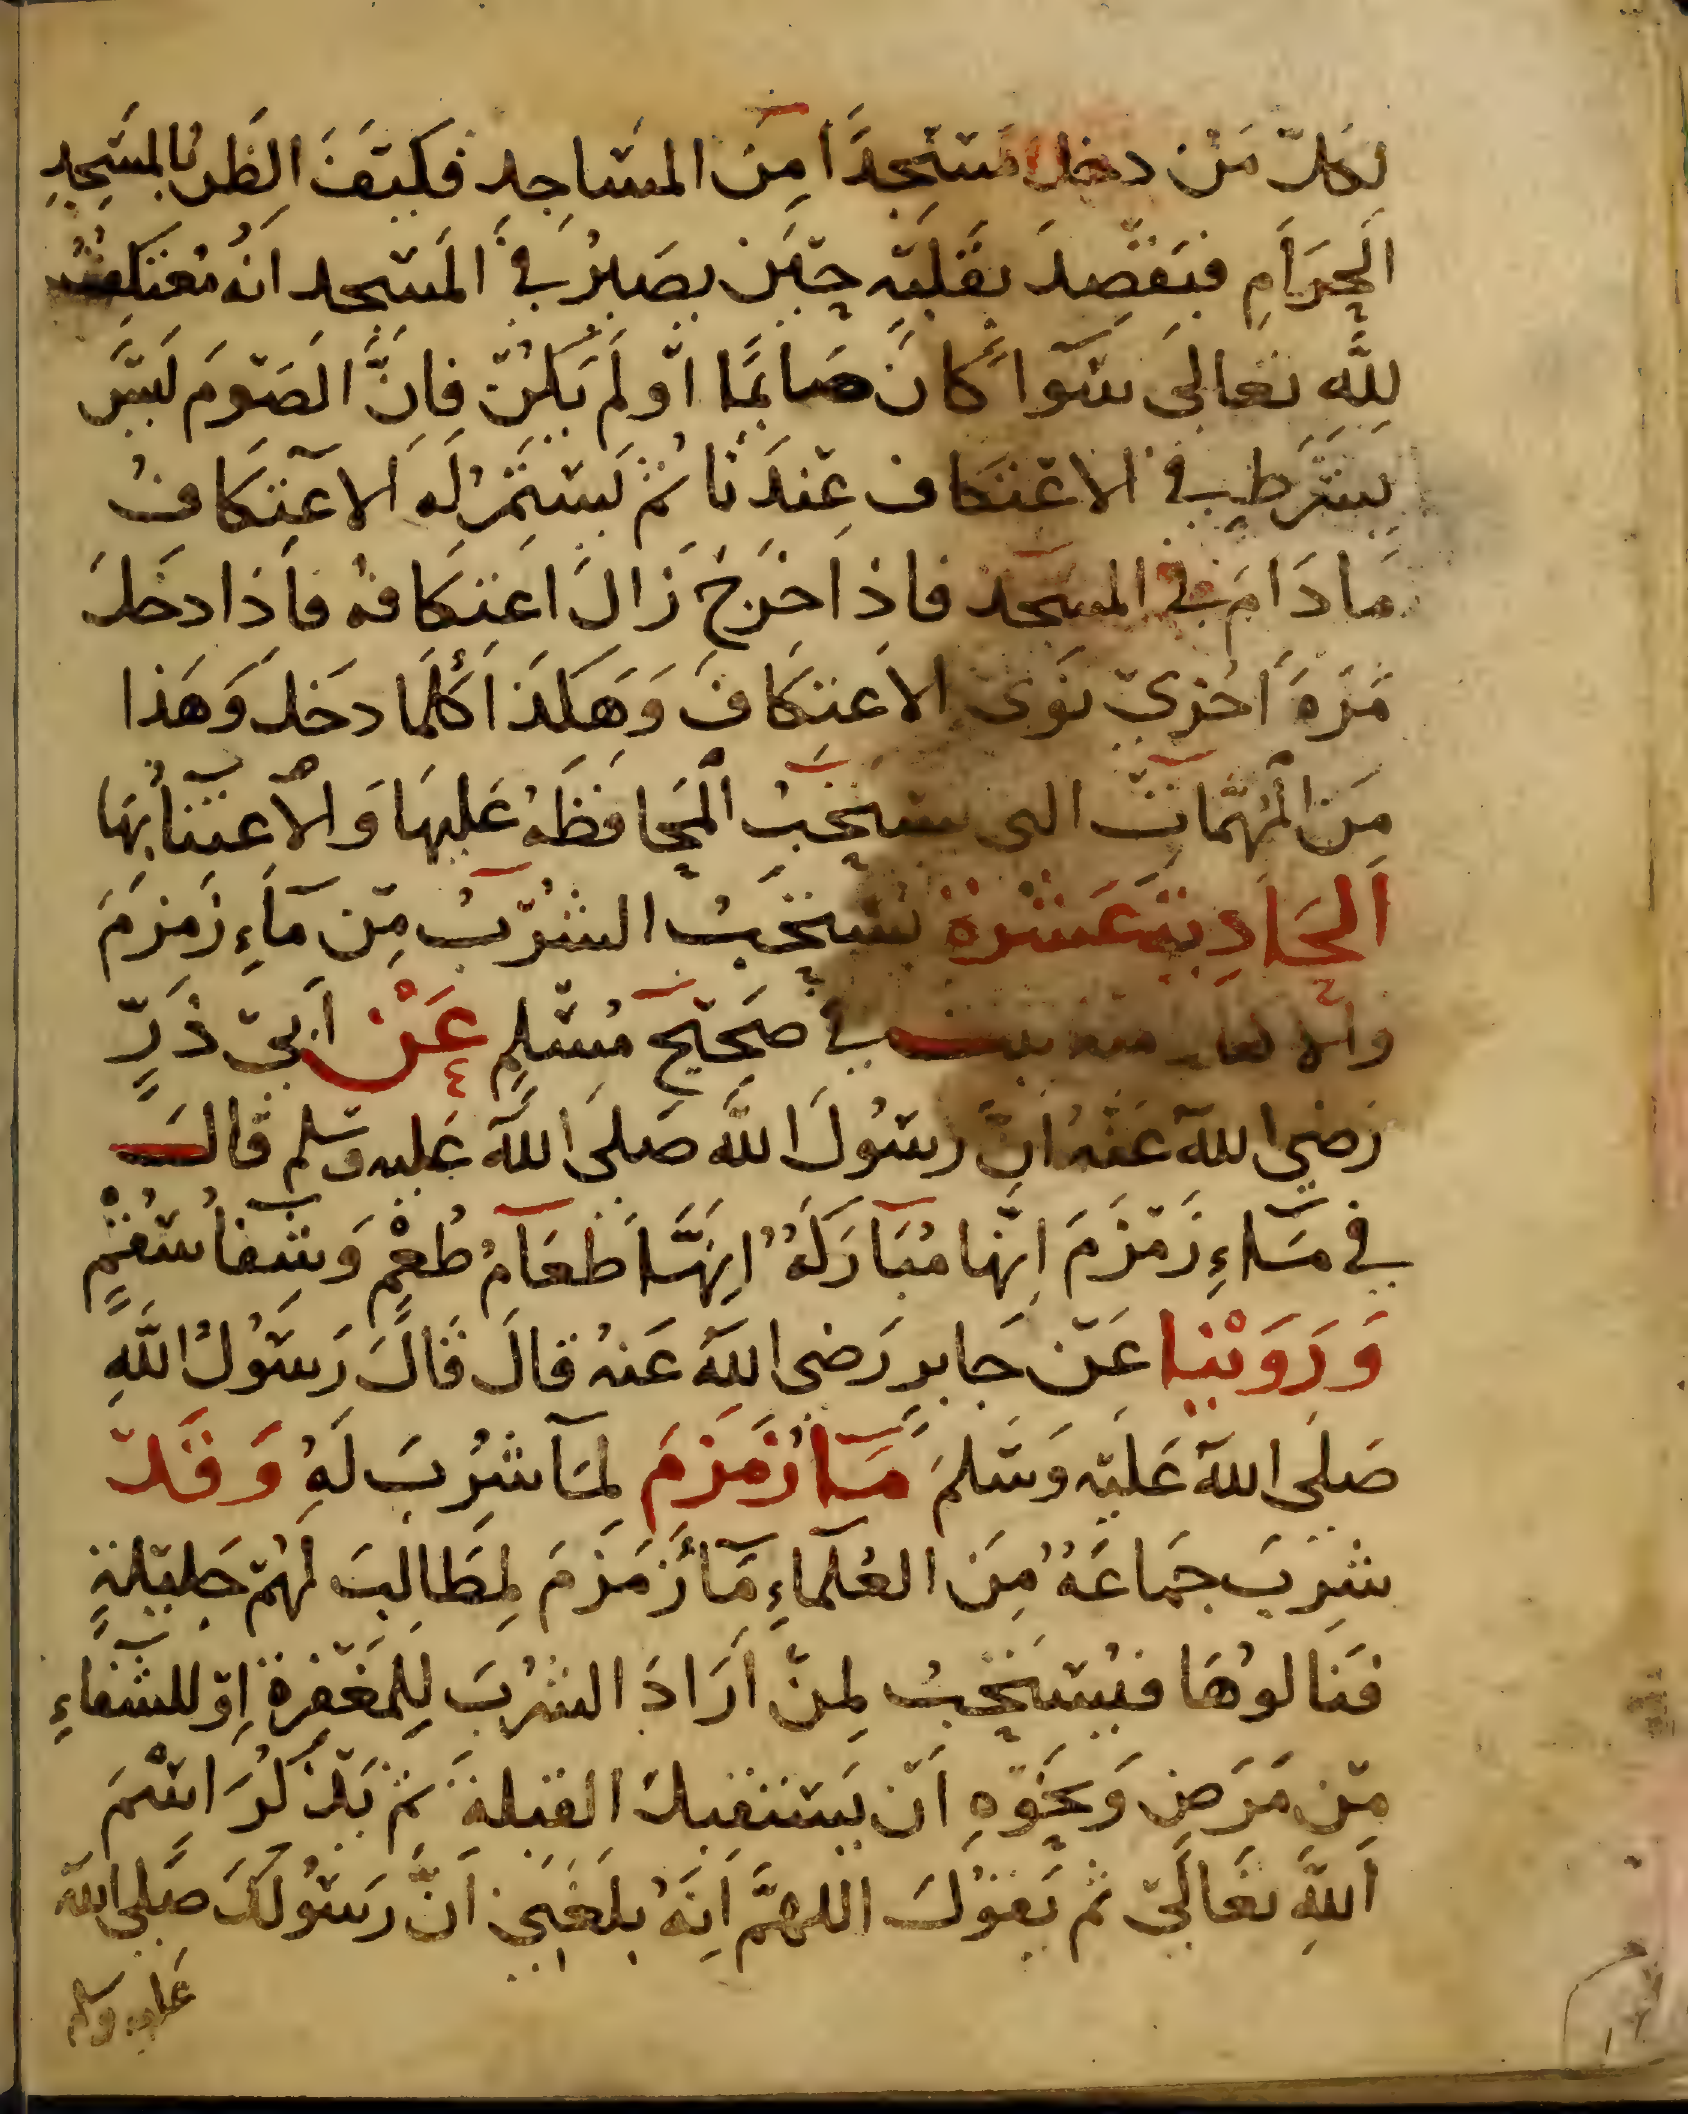 لِكُلّ مَنْ دخل مَسْجِدًا مِنَ المسَاجِدِ فكَيْفَ الظَّن بالمَسْجِدِ
الحَرَامِ فيَقْصِدَ بقَلْبِهِ حِيْنَ يصَيْرُ فِي المَسْجد انَّهُ مُعْتَكِفٌ
لِلَّهِ تعَالى سَوَآ كَانَ صَايمًا اوْ لَمْ يَكُنْ فاِنَّ الصَوْمَ لَيْسَ
بِشَرْطٍ فِي الاعْتكَاف عِنْدَنَا ثُمّ يَسْتَمْرُ لَهِ الاعْتِكَافُ
مَا دَامَ فِي المسجد فاذا خَرَجَ زَالَ اعتِكَافهُ فاَذا دخَلَ
مَرَّةً اُخْرَيْ نَوَىَ الاعتكَافَ وَهَكَذَا كُلَمَا دخَل وَهَذا
مِنَ الْمُهِمَّاتِ التى يسْتَحَبُّ الْمحَافظَة عَلَيهَا وَالاْعتنَاُ بهَا
الحَادِيَةَ عَشرة يسْتحَبُّ الشُرْبُ مِنْ مَآءِ زَمزمَ
والاكثار منه ثبت في صَحِيْحِ مُسْلِمٍ عَنْ اَبِيْ ذَرٍّ
رَضي اللهُ عَنْهُ انَّ رسُولَ اللَّهِ صَلى اللهُ عَليه وسَلم قالَ
في مَآءِ زَمْزَمَ اِنَّها مُبَارَكَةٌ اِنَهَّا طَعَامُ طُعْمٍ وَشِفآُ سُقْمٍ
وَرَوَيْنا عَنْ جَابرٍ رَضى اللهُ عَنهُ قالَ قَالَ رَسُوْلُ اللَّهِ
صَلى اللهُ عَليْهِ وَسَلمَ مَآُ زَمَزمَ لِمَا شُرِبَ لَهُ وَقَدْ
شرِبَ جمَاعَةٌ مِنَ العُلمَاءِ مَآُ زَمزَمَ لِمَطَالِبَ لَهُمْ جَلِيْلةٍ
فنَالوُهَا فيُسْتَحَبُّ لِمنْ اَرَادَ الشُرْبَ لِلمَغْفِرة اوْ للشفَاءِ
مِنْ مَرَضٍ وَنحْوِهِ اَنْ يَسْتقبلَ القبلة ثمَّ يَذْكُرَ اسْمَ
اللَّهِ تَعَالَىْ ثم يَقوْلَ اللهمَّ اِنَهُ بلغَنِي انَّ رَسُوْلَكَ صَلى الله
عليه وسلم